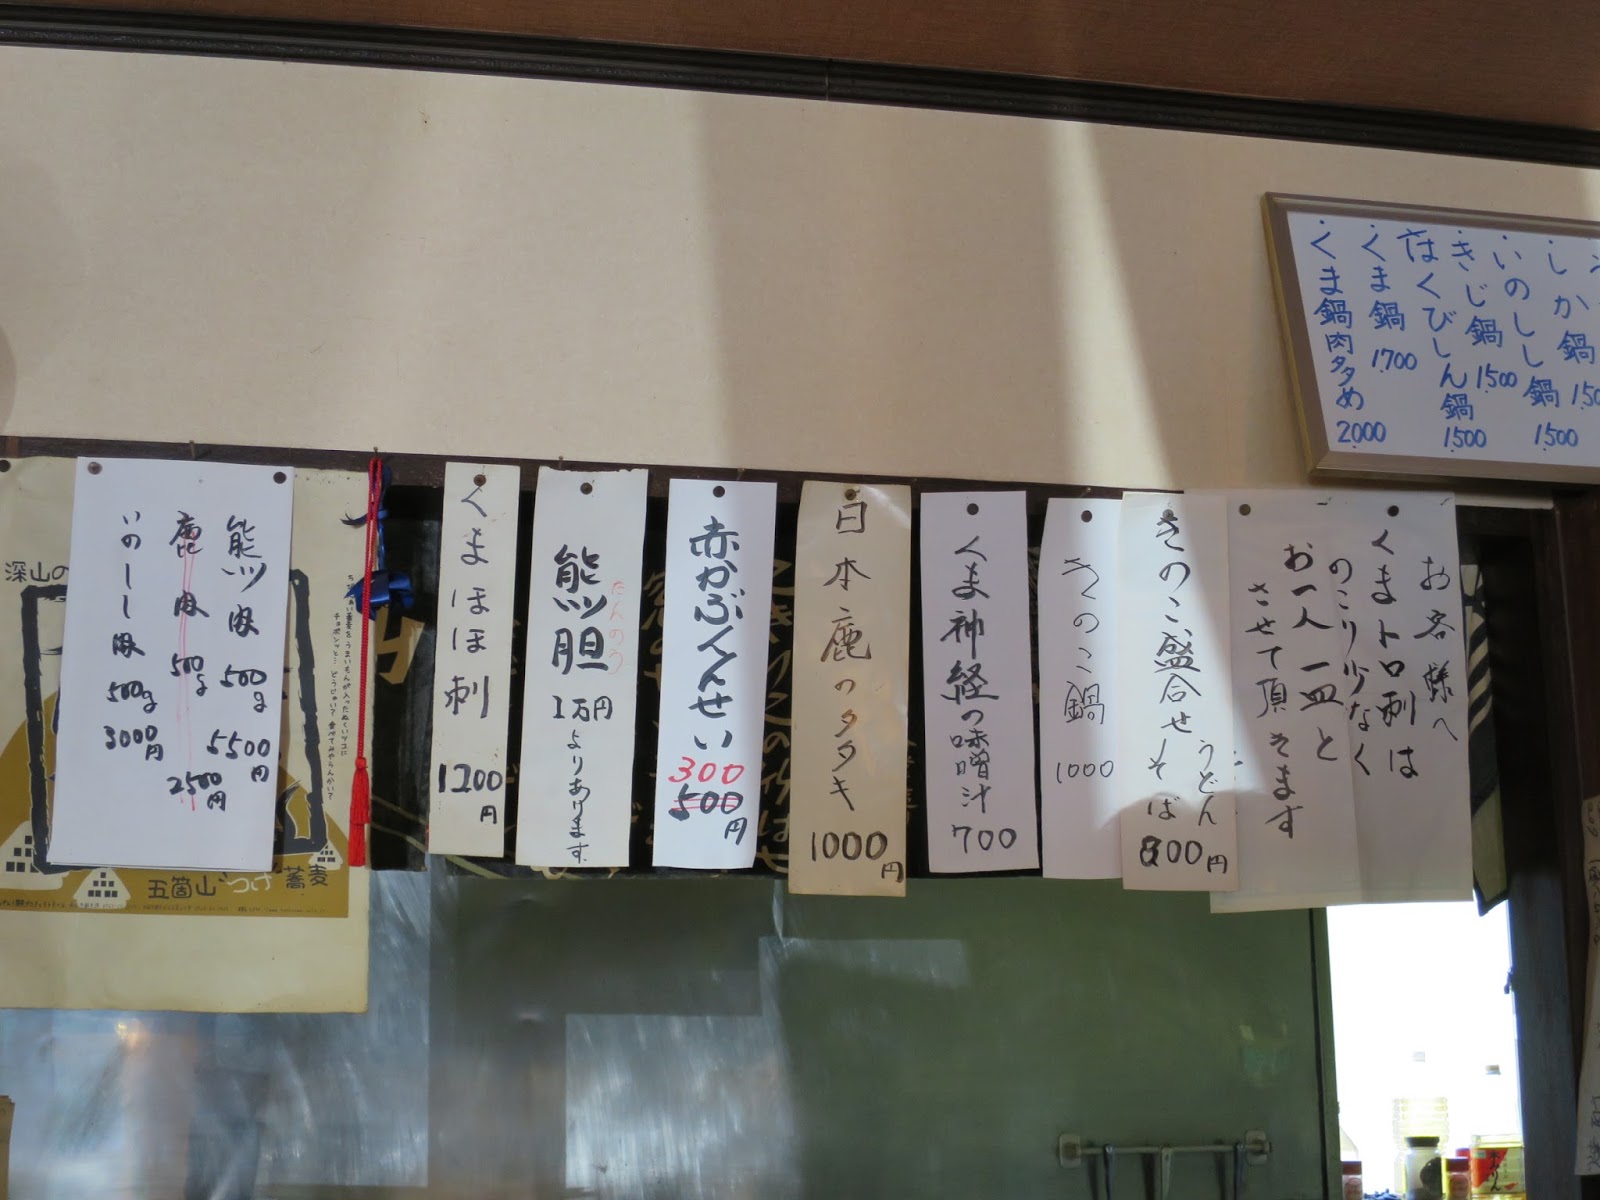 ・くま鍋肉多め 2000
・くま鍋 1700
はくびしん鍋 1500
・きじ鍋 1500
・いのしし鍋 1500
・しか鍋
お客様へ
くまトロ刺は
のこり少なく
お一人一皿と
させて頂きます
きのこ盛合せそば
うどん
800円
きのこ鍋
1000
くま神経の味噌汁
700
日本鹿のタタキ
1000円
赤かぶんんせい
300
500円
熊胆
たんのう
1万円よりあります
くまほほ刺
1200円
熊肉 500g 5500円
鹿肉 500g 2500円
いのしし肉 500g 3000円
深山の
五箇山つけ蕎麦